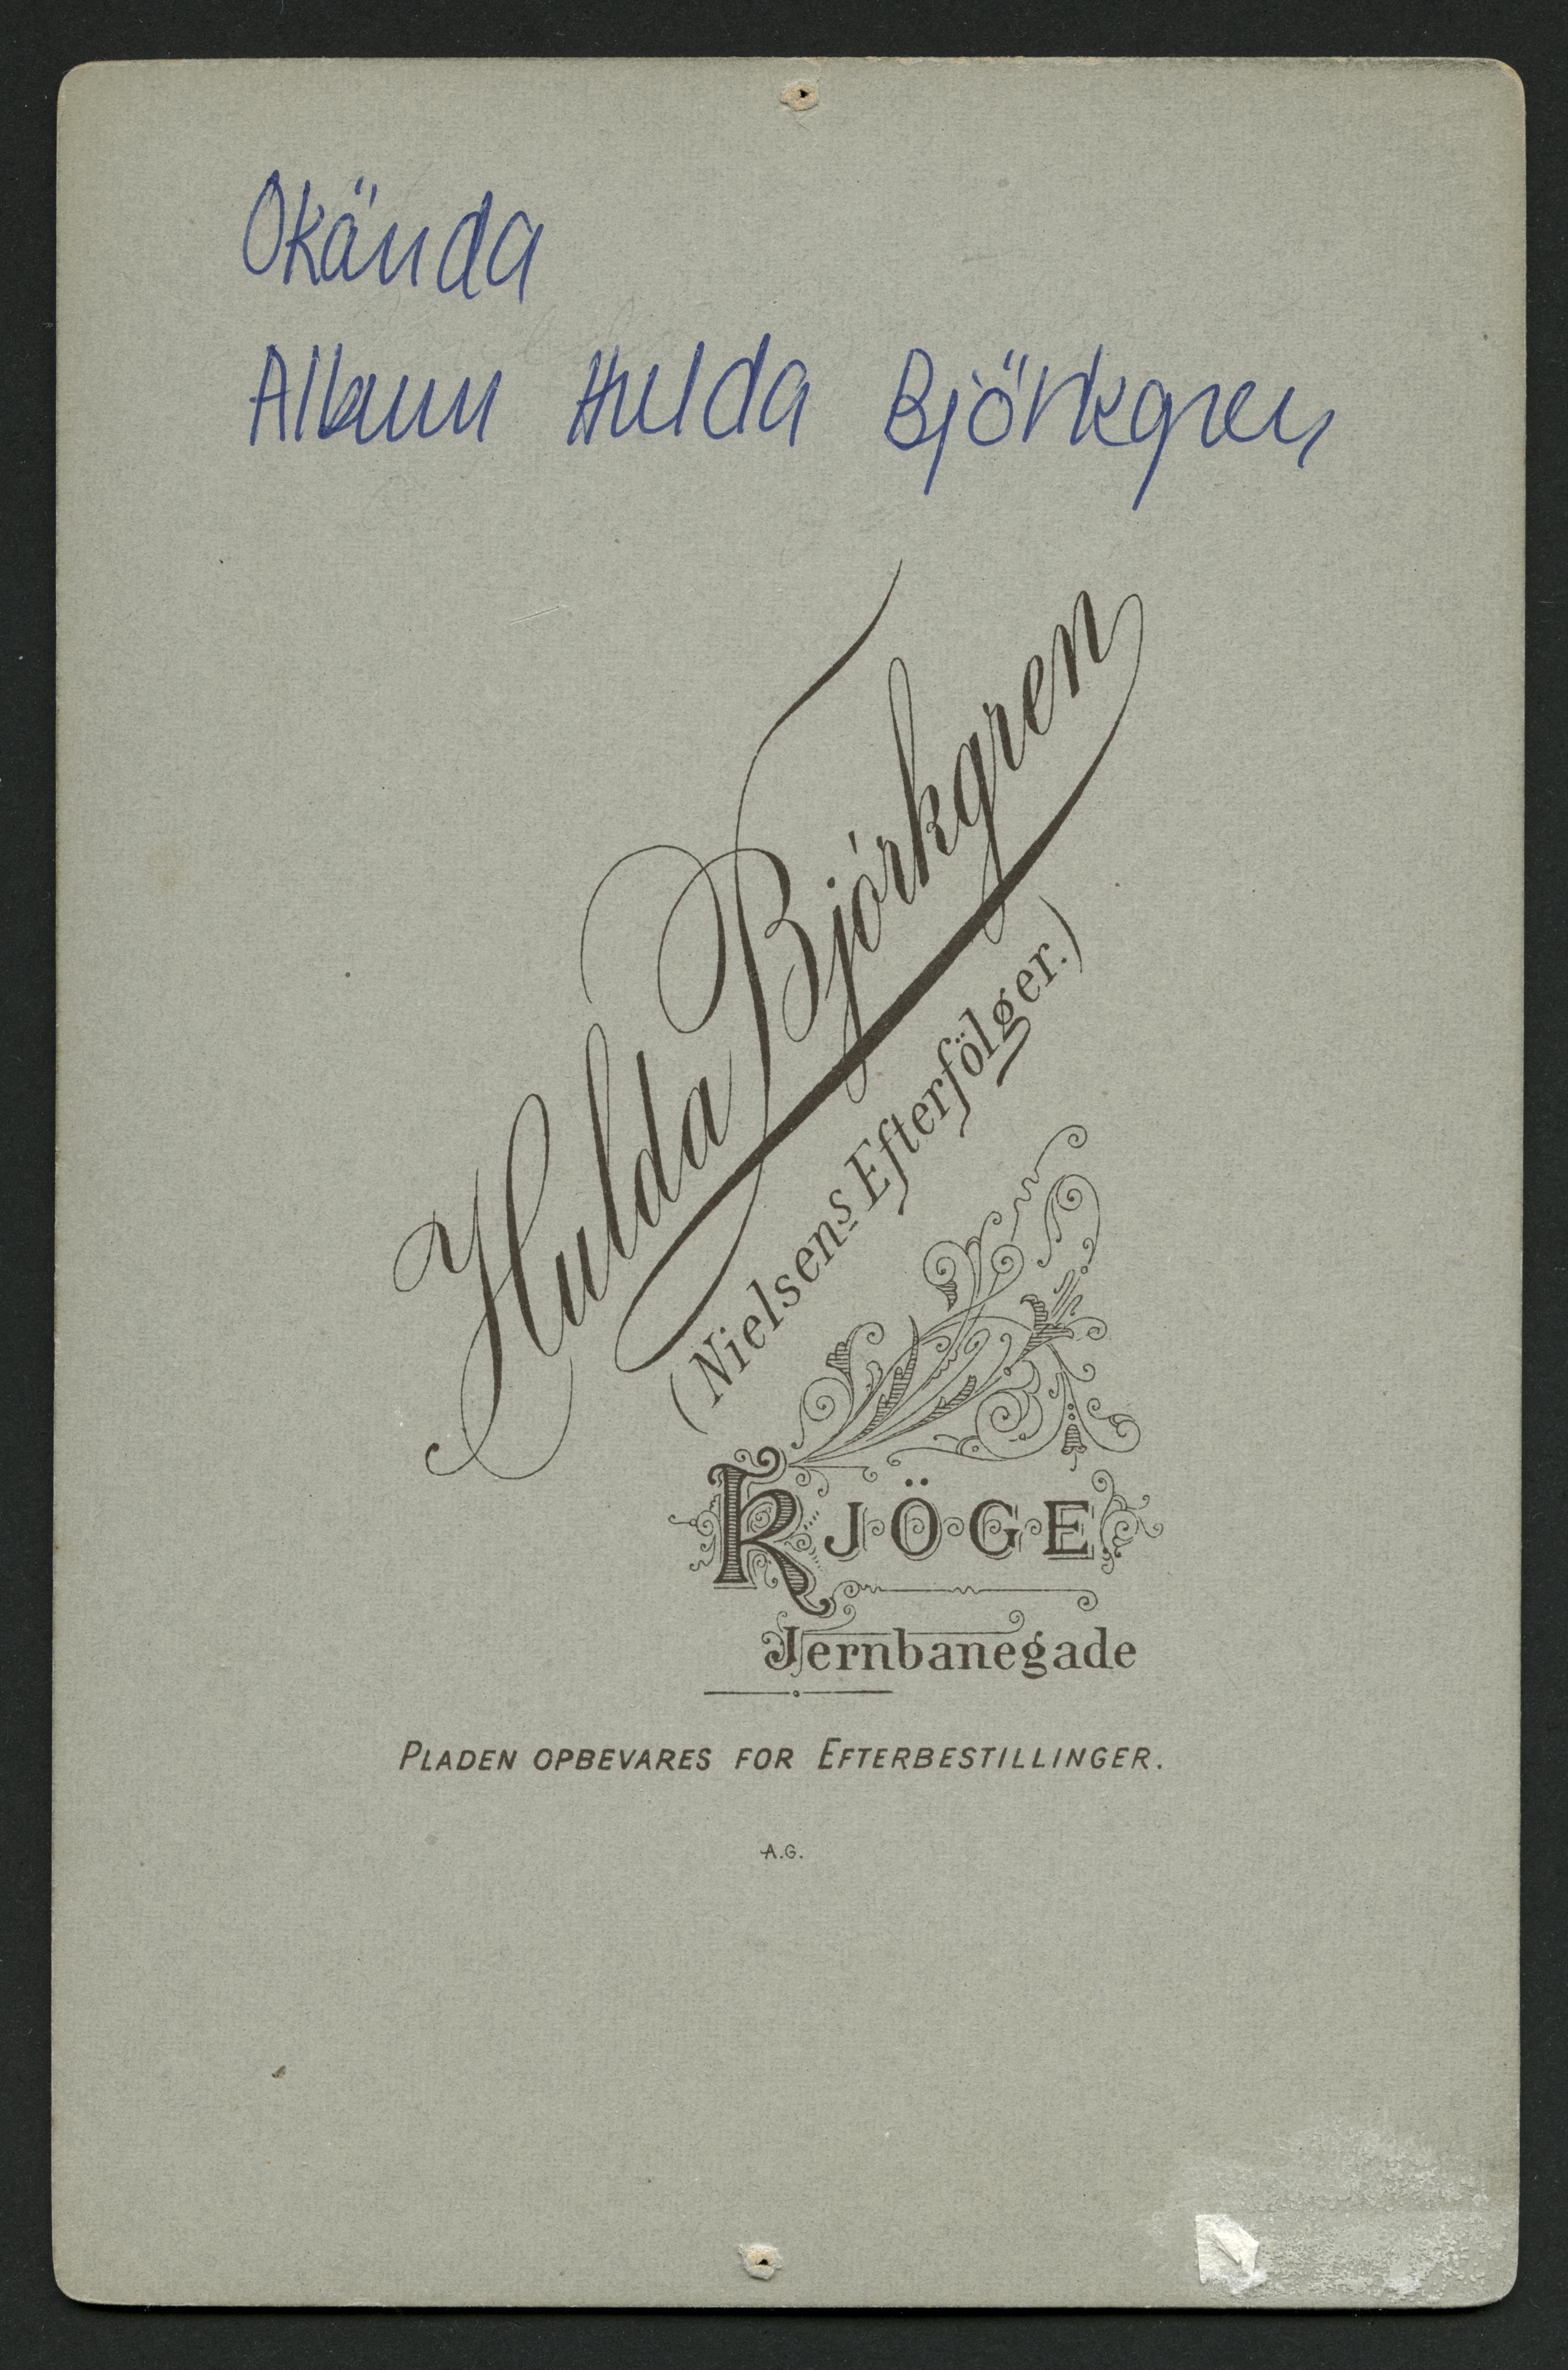 Okända
Album Hulda Björkgren
Hulda Björkgren
(Nielsens Efterfölger.)
KJÖGE
Jernbanegade
PLADEN OPBEVARES FOR EFTERBESTILLINGER.
A.G.